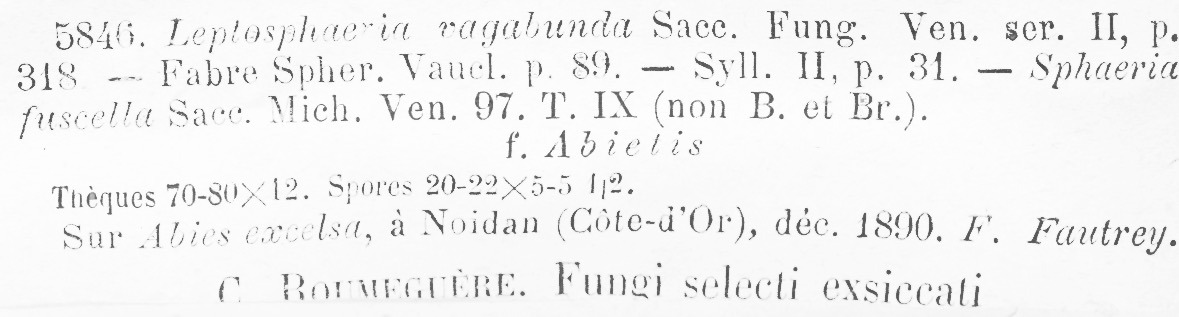 5846. Leptosphaeria vagabunda Sacc. Fung. Ven. ser. II, p.
318 — Fabre Spher. Vaucl. p. 89. — Syll. II, p. 31. — Sphaeria
fuscella Sacc. Mich. Ven. 97. T. IX (non B. et Br.).
f. Abietis
Thèques 70-80×12. Spores 20-22×5-5 1/2.
Sur Abies excelsa, à Noidan (Côte-d'Or), déc. 1890. F. Fautrey.
C. ROUMEGUÈRE. Fungi selecti exsiccati